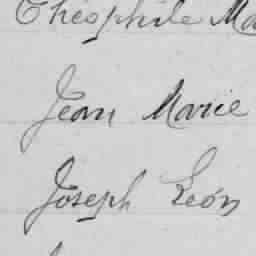 Théophile Ma
Jean Marie
Joseph Léon